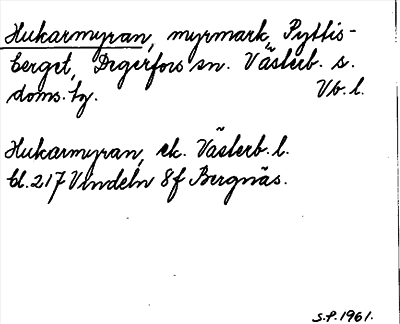 Hukarmyran, myrmark, Pyttis-
berget, Degerfors sn. Västerb. s.
doms. hg. Vb. l.
Hukarmyran, ek. Västerb. l.
bl. 217 Vindeln 8f Bergnäs.
S.P. 1961.